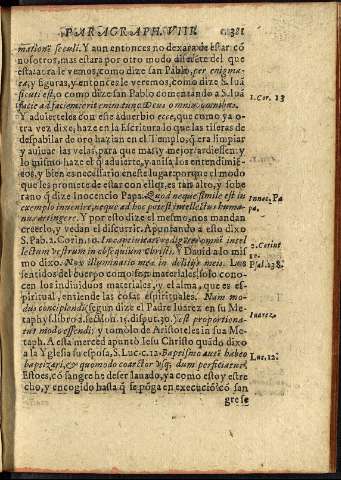 PARAGRAPH. VIIII. 381
mationē seculi. Y aun entonces no dexara de estar cō
nosotros, mas estara por otro modo diferēte del que
esta aora le vemos, como dize san Pablo, per enigma
ta, y figuras, y entonces le veremos, como dize S. Iuā
sicuti est, o como dize san Pablo comentando a S. Iuā
facie ad faciem: erit enim tunc Deus omnia omnibus.
1. Cor. 13
Y aduierteles con este aduerbio ecce, que como ya o
tra vez dixe, haze en la Escritura lo que las tiseras de
despabilar de oro hazian en el Templo, q̄ era limpiar
y auiuar las velas, para que mas, y mejor ardiessen: y
lo mismo haze el q̄ aduierte, y auisa los entendimiē-
tos, y bien es necessario en este lugar: porque el modo
que les promete de estar con ellos, es tan alto, y sobe
rano q̄ dize Inocencio Papa. Quod neque simile est in
exemplo inuenire, neque ad hoc potest intellectus huma-
nus attingere. Y por esto dize el mesmo, nos mandan
Innoc. Pa
pa.
creerlo, y vedan el discurrir. Apuntando a esto dixo
S. Pab. 2. Corin. 10. In captiuitatē redigētes omni intel
lectum vestrum in obsequium Christi. Y Dauid a lo mis
mo dixo. Nox illuminatio mea in delitijs meis. Los
2. Corint
10.
Psal. 138.
sentidos del cuerpo como son materiales, solo cono-
cen los indiuiduos materiales, y el alma, que es es-
piritual, entiende las cosas espirituales. Nam mo-
dus concipiendi, segun dize el Padre Iuarez en su Me
taphys. libro 2. sectiō 1. 15. disput. 30. est proportiona-
tus modo essendi: y tomolo de Aristoteles in sua Me
Iuarez.
taph. A esta merced apuntò Iesu Christo quādo dixo
a la Yglesia su esposa, S. Luc. c. 12. Baptismo autē habeo
baptizari, & quomodo coarctor vsq; dum perficiatur.
Luc. 12.
Esto es, cō sangre he de ser lauado, ya como estoy estre
cho, y encogido hasta q̄ se pōga en execució: cō san
gre se